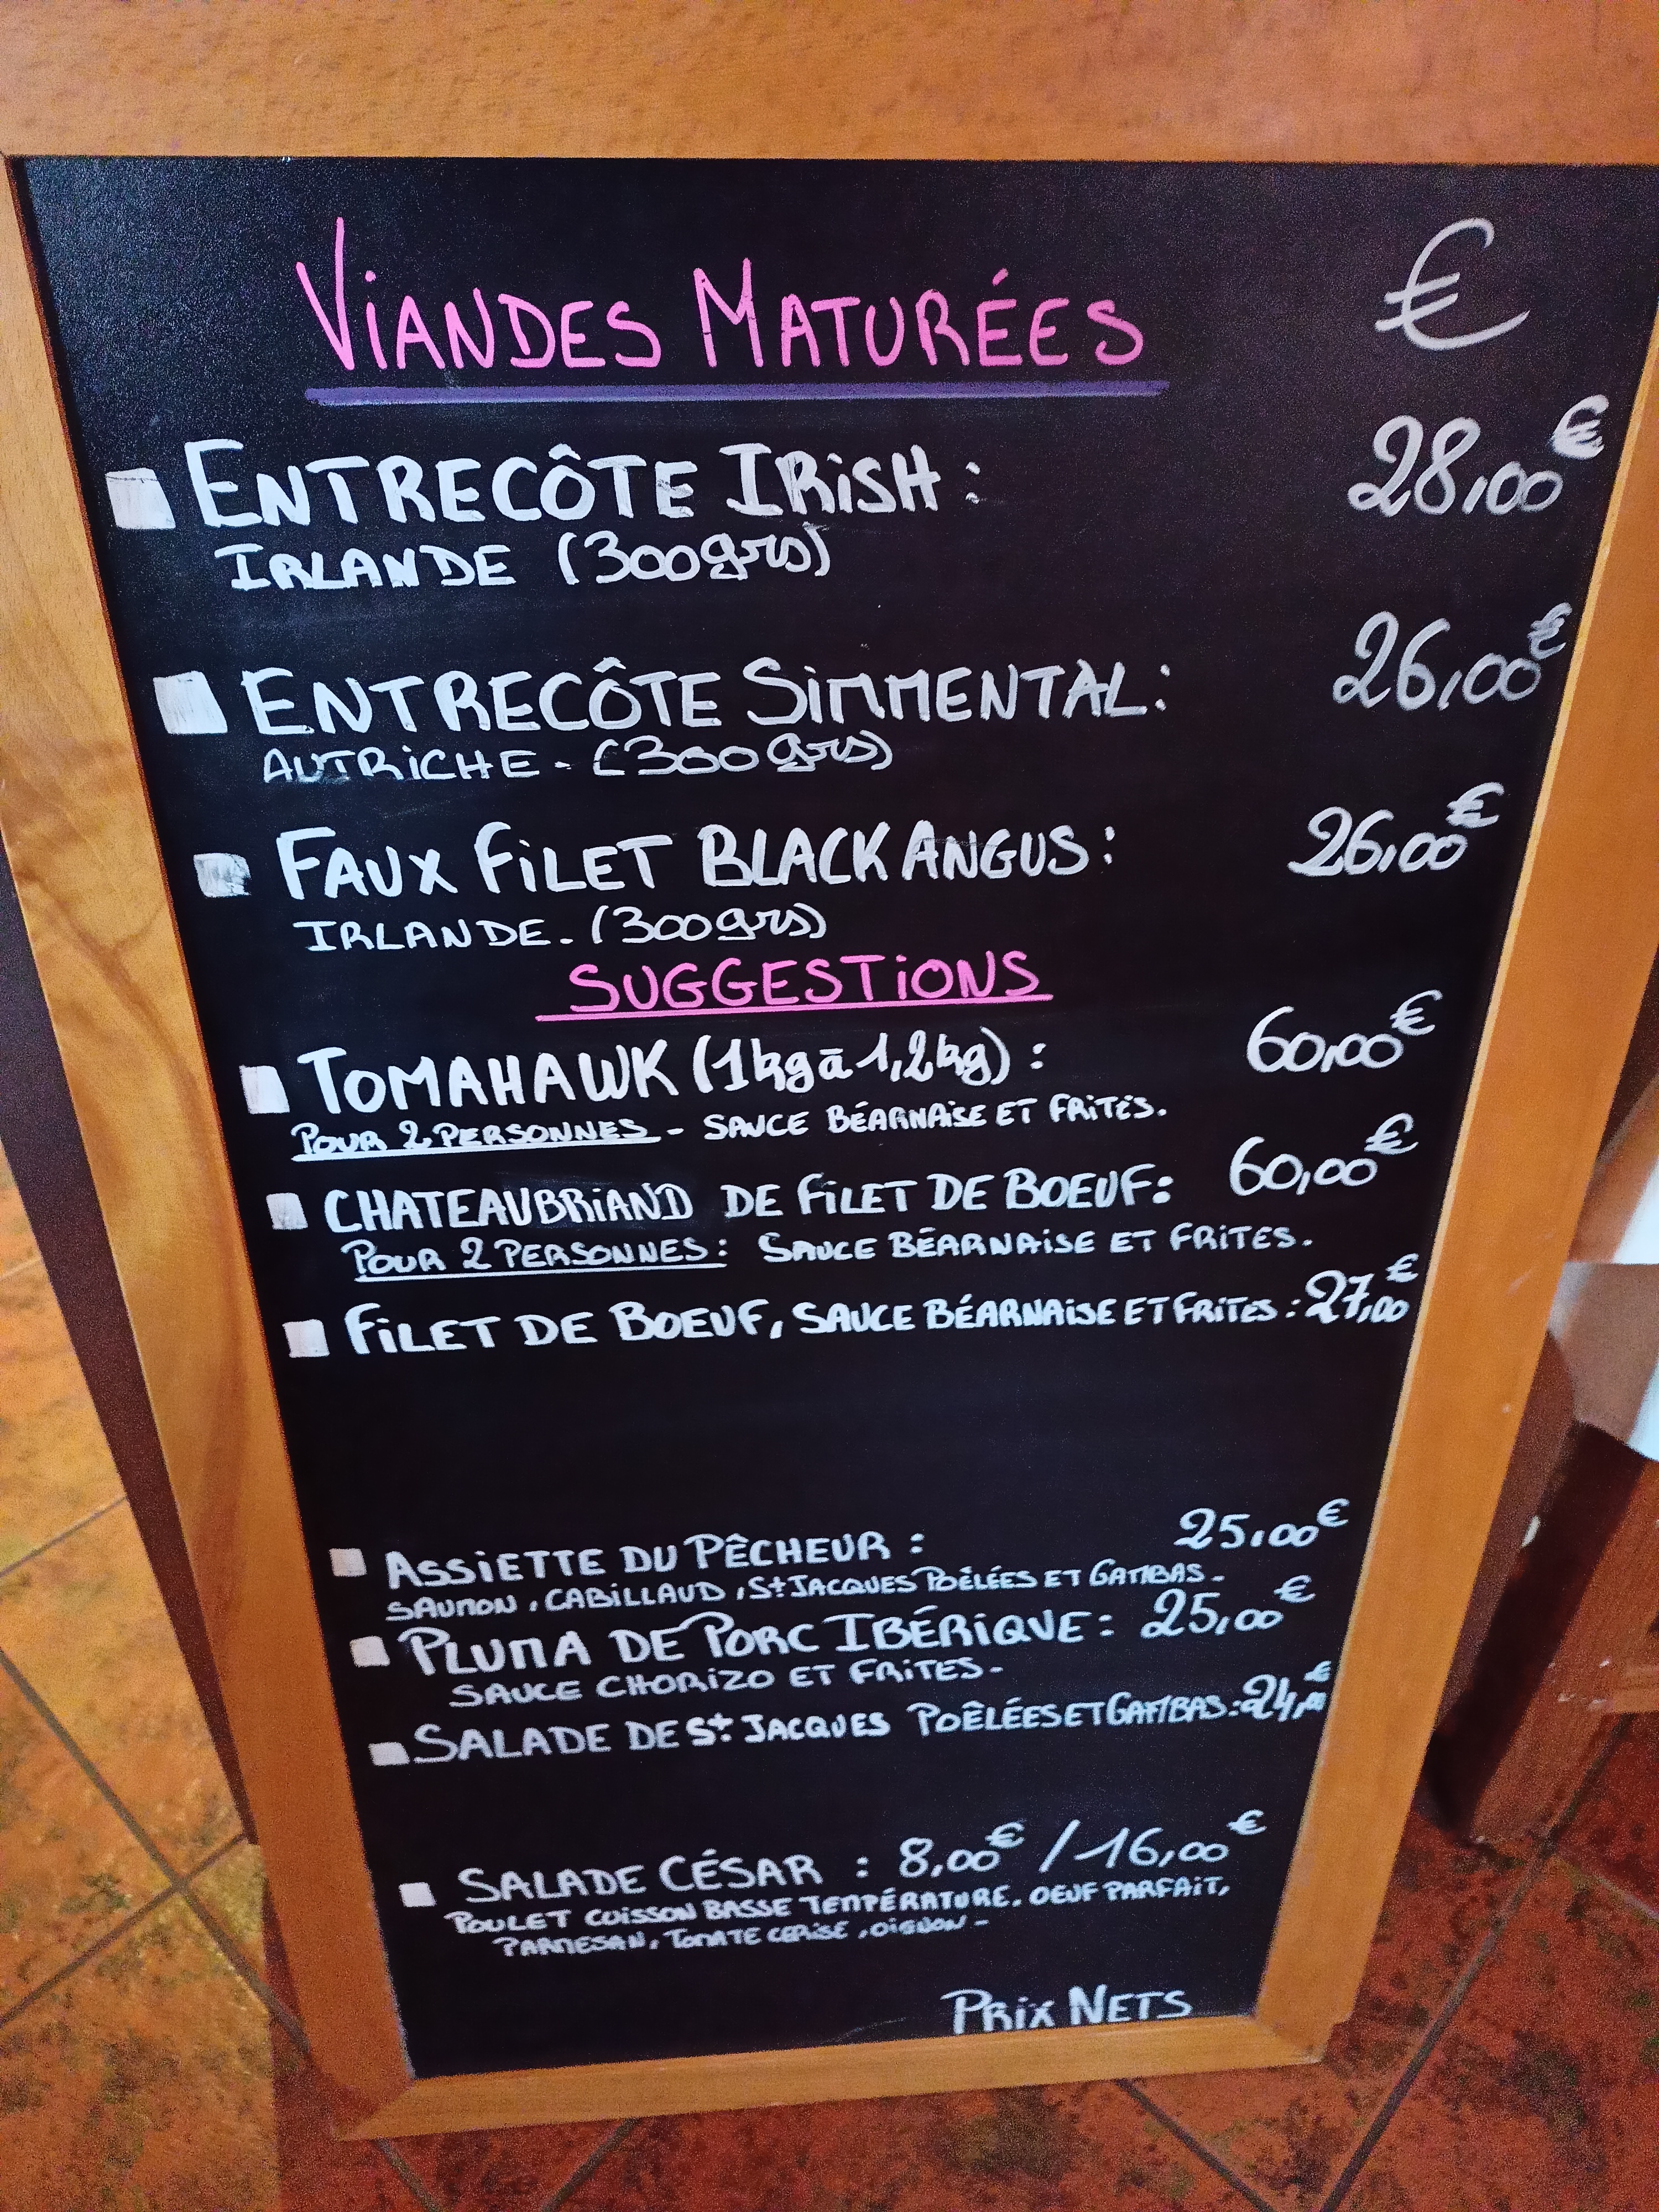 VIANDES MATURÉES €
ENTRECÔTE IRISH : 28,00€
IRLANDE (300grs)
ENTRECÔTE SIMMENTAL : 26,00€
AUTRICHE - (300grs)
FAUX FILET BLACK ANGUS : 26,00€
IRLANDE. (300grs)
SUGGESTIONS
TOMAHAWK (1kg à 1,2kg) : 60,00€
POUR 2 PERSONNES - SAUCE BÉARNAISE ET FRITES.
CHATEAUBRIAND DE FILET DE BOEUF : 60,00€
POUR 2 PERSONNES : SAUCE BÉARNAISE ET FRITES.
FILET DE BOEUF, SAUCE BÉARNAISE ET FRITES : 27,00€
ASSIETTE DU PÊCHEUR : 25,00€
SAUMON, CABILLAUD, St JACQUES POÊLÉES ET GAMBAS -
PLUMA DE PORC IBÉRIQUE : 25,00€
SAUCE CHORIZO ET FRITES -
SALADE DE St JACQUES POÊLÉES ET GAMBAS : 24,00€
SALADE CÉSAR : 8,00€ / 16,00€
POULET CUISSON BASSE TEMPÉRATURE. OEUF PARFAIT,
PARMESAN, TOMATE CERISE, OIGNON -
PRIX NETS